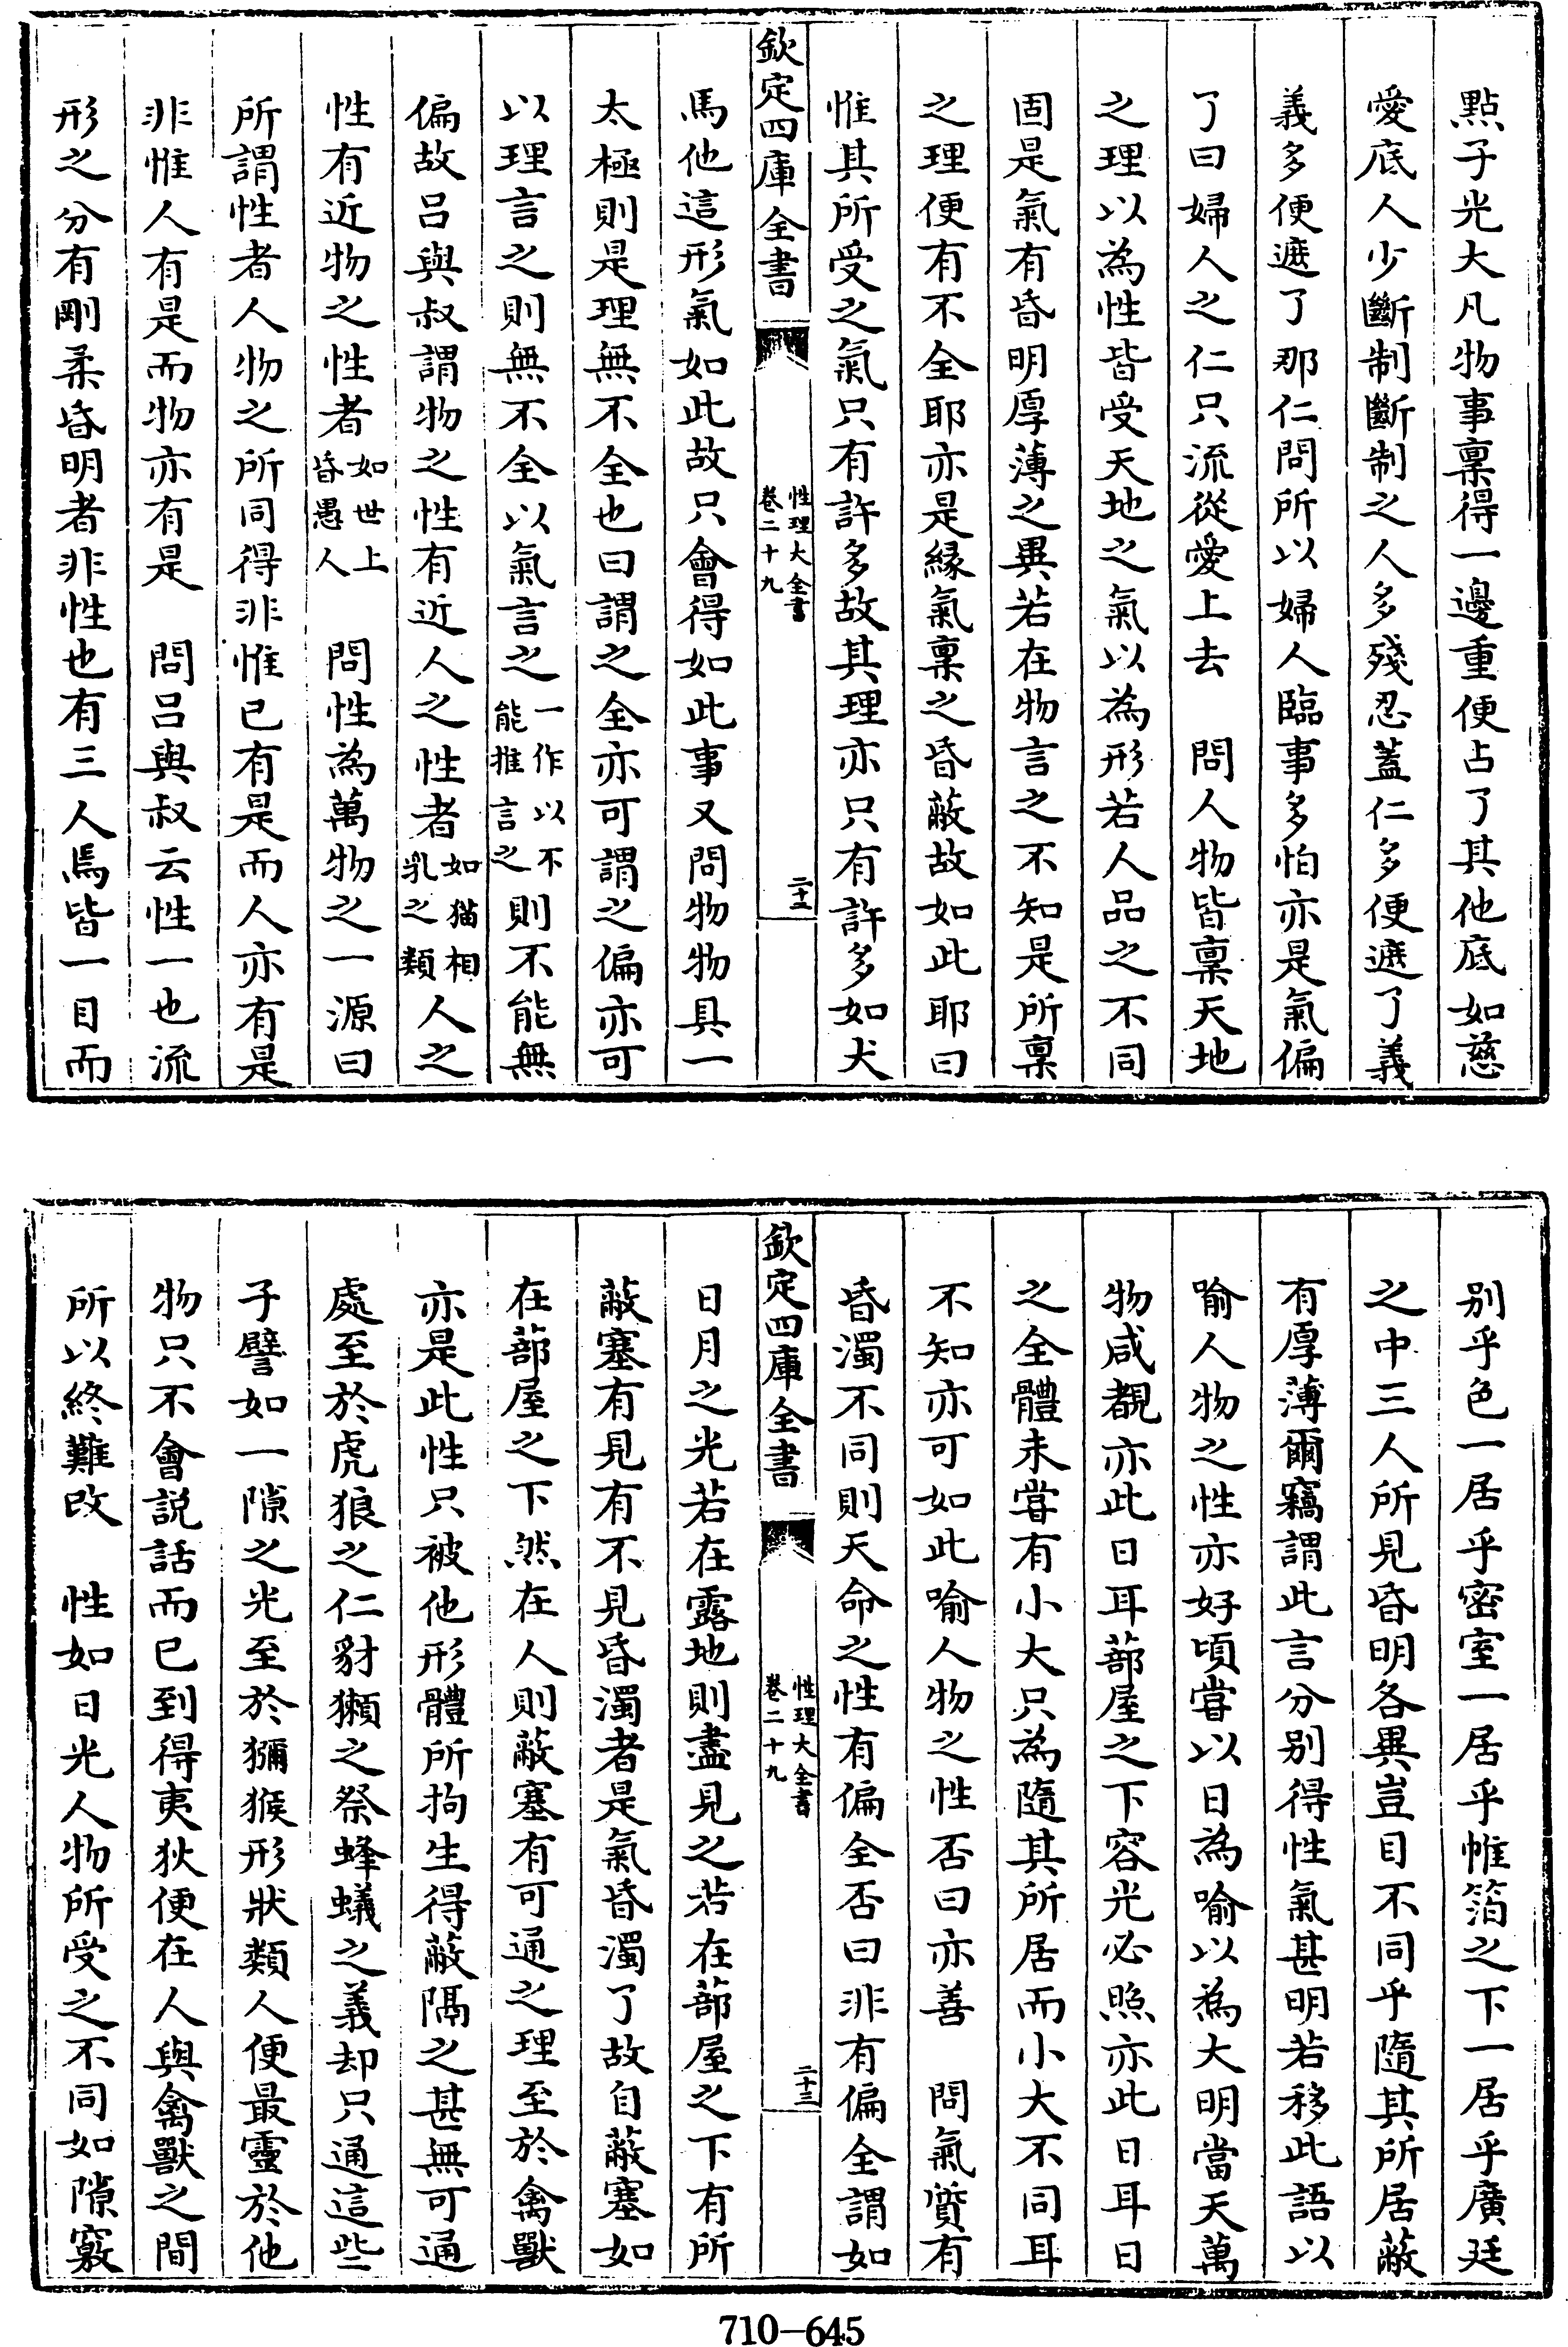 點子光大凡物事稟得一邊重便占了其他底如慈
愛底人少斷制斷制之人多殘忍蓋仁多便遮了義
義多便遮了那仁問所以婦人臨事多怕亦是氣偏
了曰婦人之仁只流從愛上去　問人物皆稟天地
之理以為性皆受天地之氣以為形若人品之不同
固是氣有昏明厚薄之異若在物言之不知是所稟
之理便有不全耶亦是緣氣稟之昏蔽故如此耶曰
惟其所受之氣只有許多故其理亦只有許多如犬
欽定四庫全書
性理大全書
卷二十九
二十二
馬他這形氣如此故只會得如此事又問物物具一
太極則是理無不全也曰謂之全亦可謂之偏亦可
以理言之則無不全以氣言之一作以不能推言之則不能無
偏故呂與叔謂物之性有近人之性者如猫相乳之類人之
性有近物之性者如世上昏愚人　問性為萬物之一源曰
所謂性者人物之所同得非惟已有是而人亦有是
非惟人有是而物亦有是　問呂與叔云性一也流
形之分有剛柔昏明者非性也有三人焉皆一目而
別乎色一居乎密室一居乎帷箔之下一居乎廣廷
之中三人所見昏明各異豈目不同乎隨其所居蔽
有厚薄爾竊謂此言分別得性氣甚明若移此語以
喻人物之性亦好頃嘗以日為喻以為大明當天萬
物咸覩亦此日耳蔀屋之下容光必照亦此日耳日
之全體未嘗有小大只為隨其所居而小大不同耳
不知亦可如此喻人物之性否曰亦善　問氣質有
昏濁不同則天命之性有偏全否曰非有偏全謂如
欽定四庫全書
性理大全書
卷二十九
二十三
日月之光若在露地則盡見之若在蔀屋之下有所
蔽塞有見有不見昏濁者是氣昏濁了故自蔽塞如
在蔀屋之下然在人則蔽塞有可通之理至於禽獸
亦是此性只被他形體所拘生得蔽隔之甚無可通
處至於虎狼之仁豺獺之祭蜂蟻之義却只通這些
子譬如一隙之光至於獼猴形狀類人便最靈於他
物只不會說話而已到得夷狄便在人與禽獸之間
所以終難改　性如日光人物所受之不同如隙竅
710-645